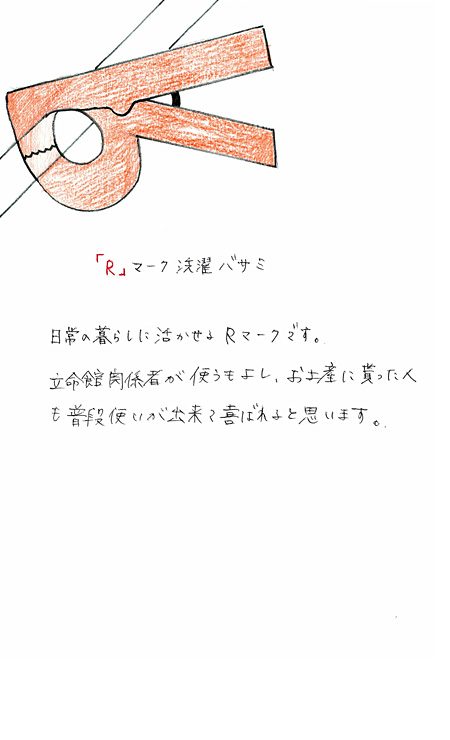 「R」マーク洗濯バサミ
日常の暮らしに活かせるRマークです。
立命館関係者が使うもよし、お土産に貰った人
も普段使いが出来て喜ばれると思います。